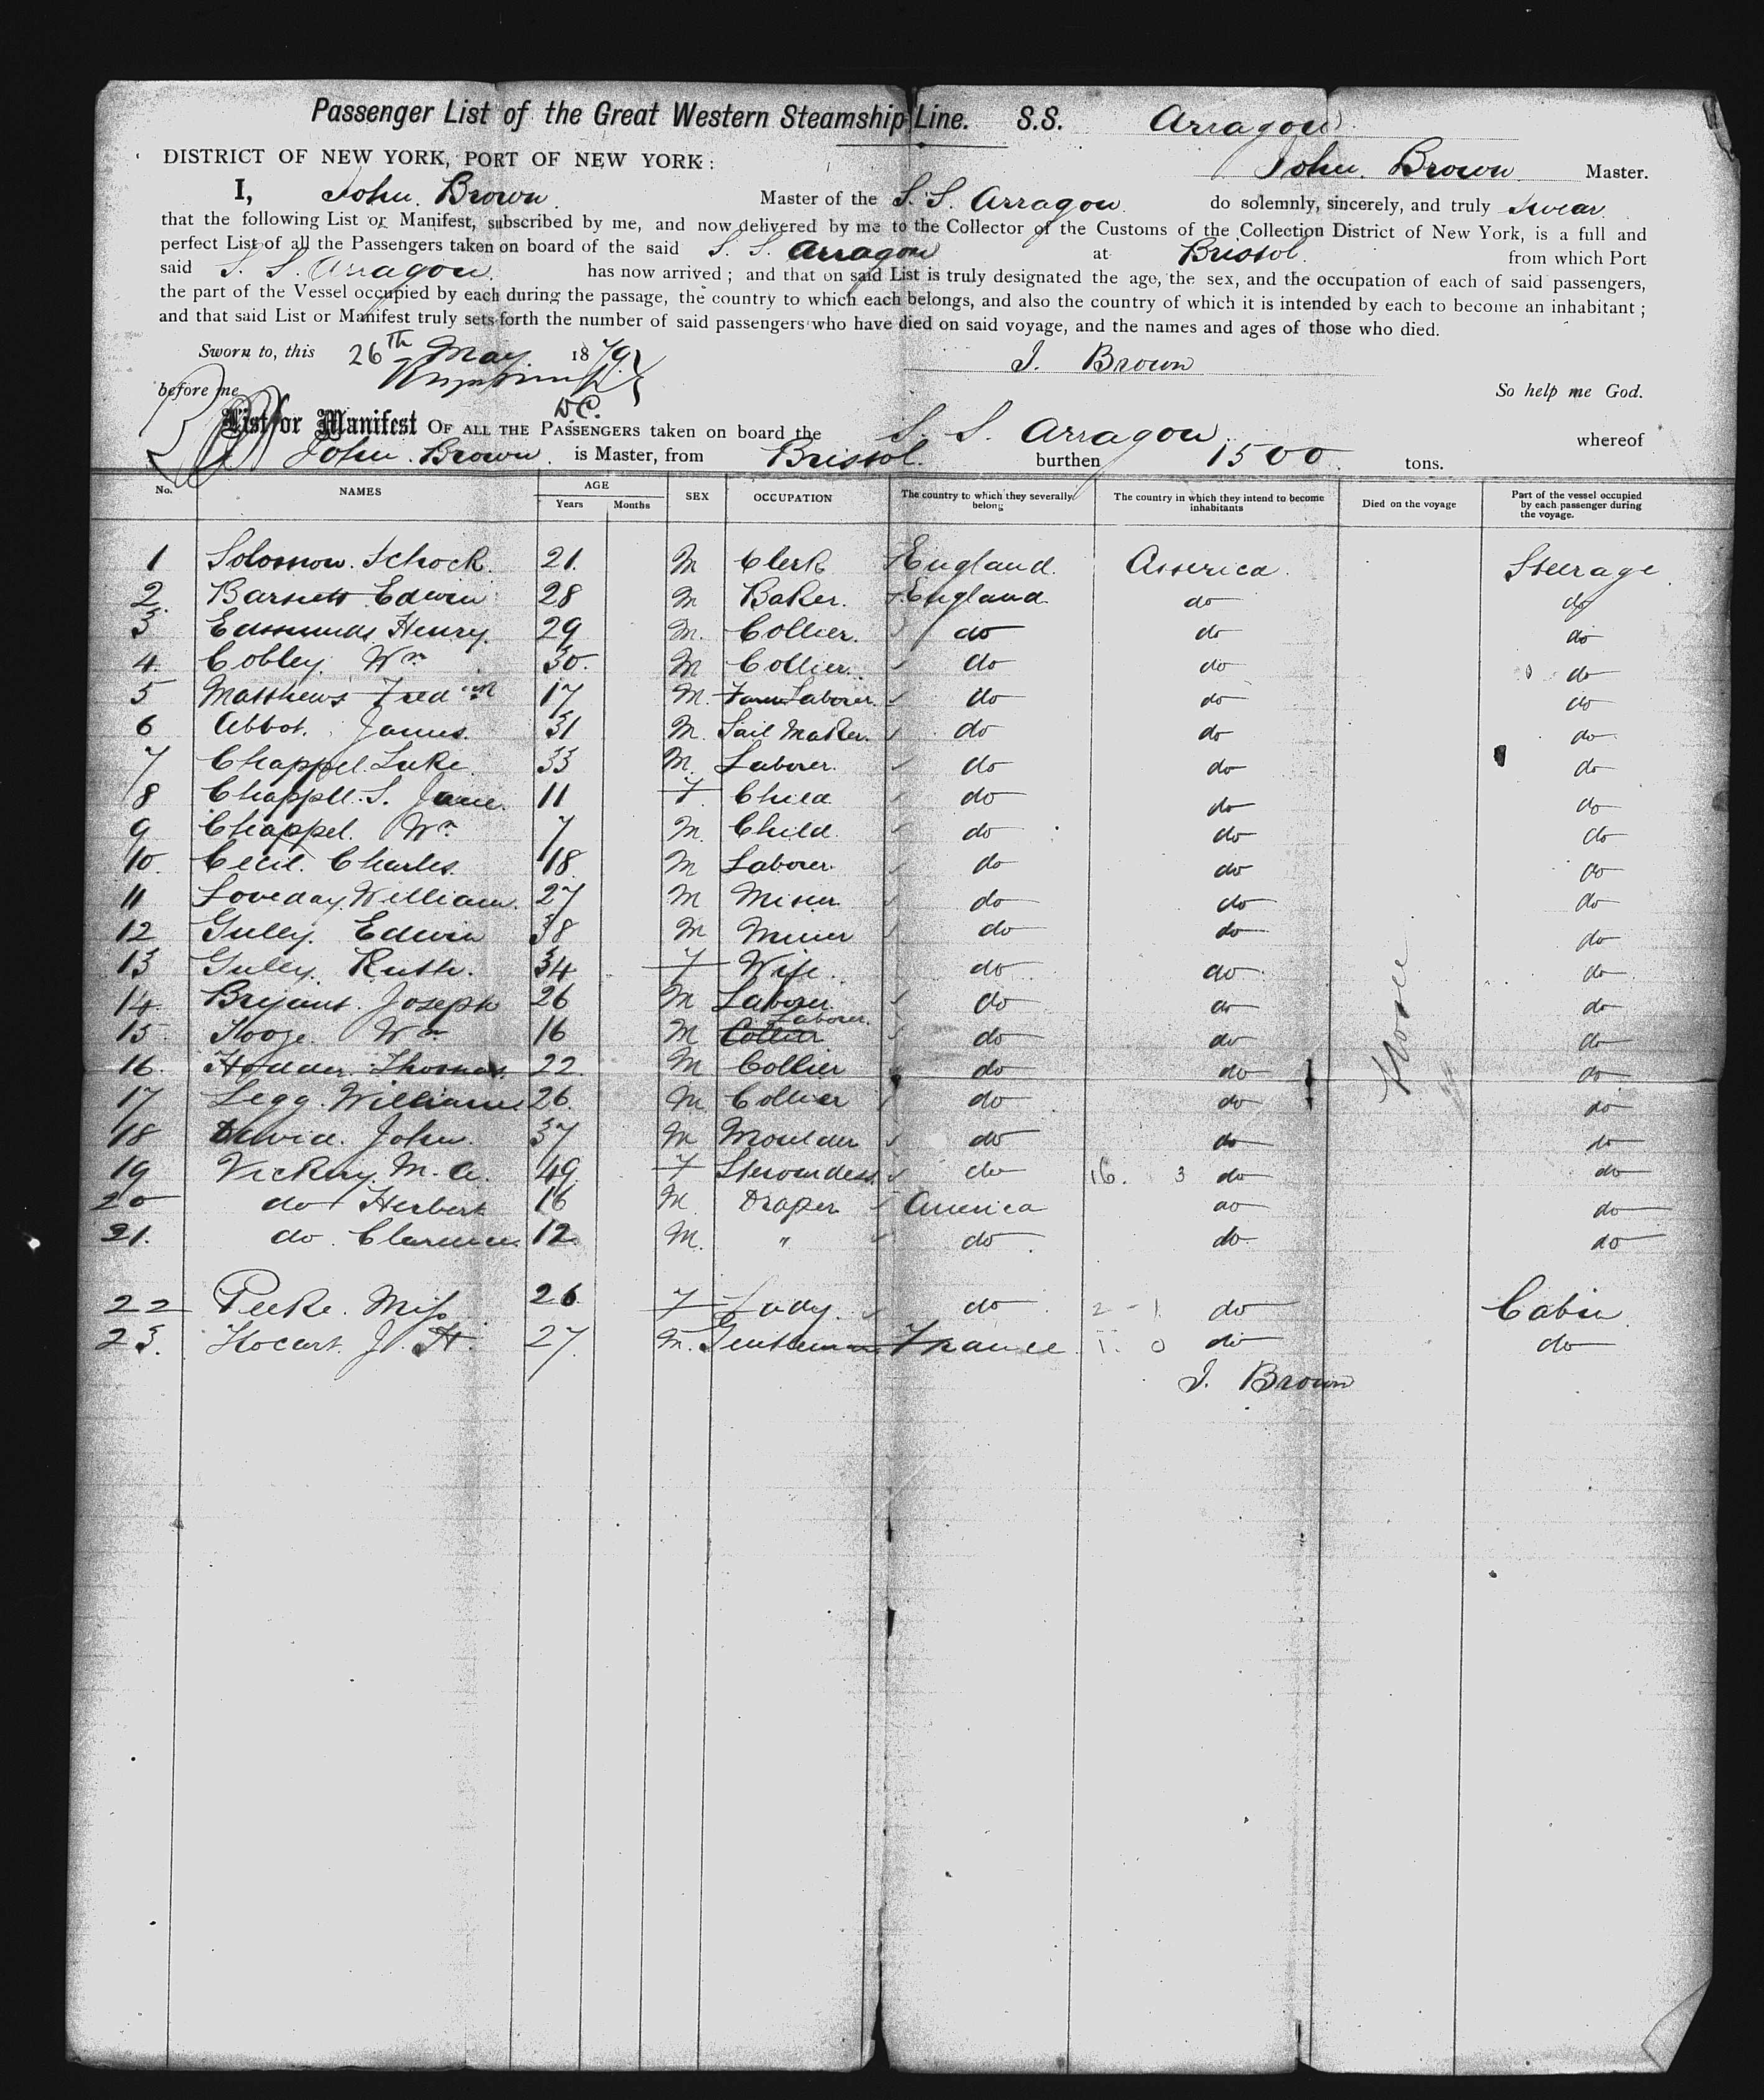 Passenger List of the Great Western Steamship Line. S.S. Arragon
DISTRICT OF NEW YORK, PORT OF NEW YORK: John. Brown Master.
I, John. Brown. Master of the S. S. Arragon do solemnly, sincerely, and truly swear
that the following List or Manifest, subscribed by me, and now delivered by me to the Collector of the Customs of the Collection District of New York, is a full and
perfect List of all the Passengers taken on board of the said S. S. Arragon at Bristol. from which Port
said S. S. Arragon has now arrived; and that on said List is truly designated the age, the sex, and the occupation of each of said passengers,
the part of the Vessel occupied by each during the passage, the country to which each belongs, and also the country of which it is intended by each to become an inhabitant;
and that said List or Manifest truly sets forth the number of said passengers who have died on said voyage, and the names and ages of those who died.
Sworn to, this 26th May 1879 J. Brown
before me So help me God.
D.C.
List or Manifest OF ALL THE PASSENGERS taken on board the S. S. Arragon whereof
John. Brown. is Master, from Bristol. burthen 1500. tons.
No. NAMES AGE Years Months SEX OCCUPATION The country to which they severally belong The country in which they intend to become inhabitants Died on the voyage Part of the vessel occupied by each passenger during the voyage.
1 Solomon. Schock. 21. M Clerk England. America. Steerage
2. Barnett Edwin 28 M Baker. England do do
3 Edmunds Henry. 29 M. Collier. do do do
4. Cobley. Wm 30. M Collier. do do do
5 Matthews Fred 17 M. Farm Laborer. do do do
6 Abbot. James. 31 M. Sail Maker. do do do
7 Chappel. Luke. 33 M. Laborer. do do do
8 Chappell. S. Jane. 11 F. Child do do do
9 Chappel. Wm 7 M. Child. do do do
10. Cecil. Charles. 18 M Laborer. do do do
11 Loveday. William. 27 M Miner do do do
12 Gulley. Edwin 38 M Miner do do do
13 Gulley. Ruth. 34 F Wife. do do do
14. Bryant. Joseph 26 M Laborer do do do
15. Wm 16 M Collier Laborer. do do do
16. Hodder. Thomas. 22. M Collier do do do
17 Legg. William 26. M Collier do do do
18 David. John. 37 M Moulder do do do
19 Vickery. M. A. 49. F Stewardess. do 16. 3 do do
20 do Herbert 16 M. Draper America do do
21. do. Clarence. 12. M. " do do do
None
22 Peeke. Miss 26 F Lady. do 2 - 1 do Cabin
23. Hocart. J. H. 27 M. Gentleman France 1. 0 do do
J. Brown